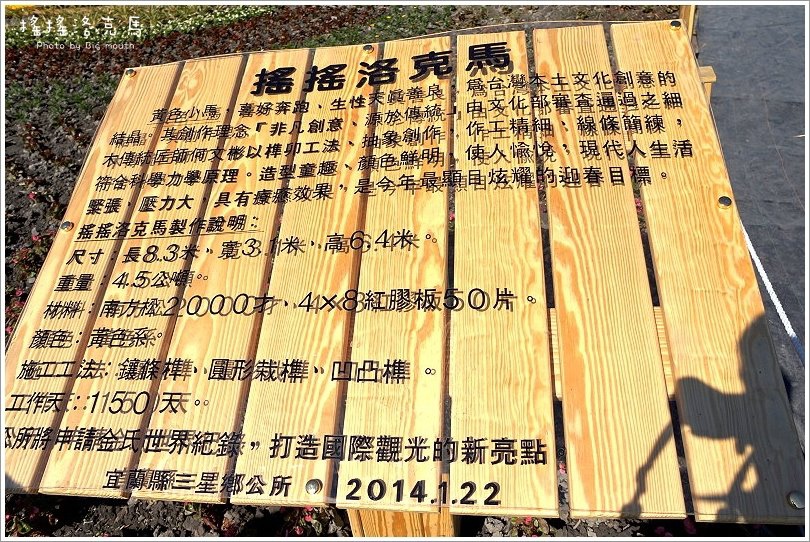 搖搖洛克馬
Photo by Big mouth
搖搖洛克馬
黃色小馬，喜好奔跑、生性天真善良，為台灣本土文化創意的
結晶。其創作理念『非凡創意、源於傳統』由文化部審查通過之細
木傳統匠師何文彬以榫卯工法、抽象創作，作工精細，線條簡練，
符合科學力學原理。造型童趣、顏色鮮明，使人愉悅，現代人生活
緊張，壓力大，具有療癒效果，是今年最顯目炫耀的迎春目標。
搖搖洛克馬製作說明：
尺寸：長8.3米，寬3.1米，高6.4米。
重量：4.5公噸。
材料：南方松20000才、4×8紅膠板50片。
顏色：黃色系。
施工工法：鑲條榫、圓形栽榫、凹凸榫。
工作天：1150天。
公所將申請金氏世界紀錄，打造國際觀光的新亮點。
宜蘭縣三星鄉公所 2014.1.22